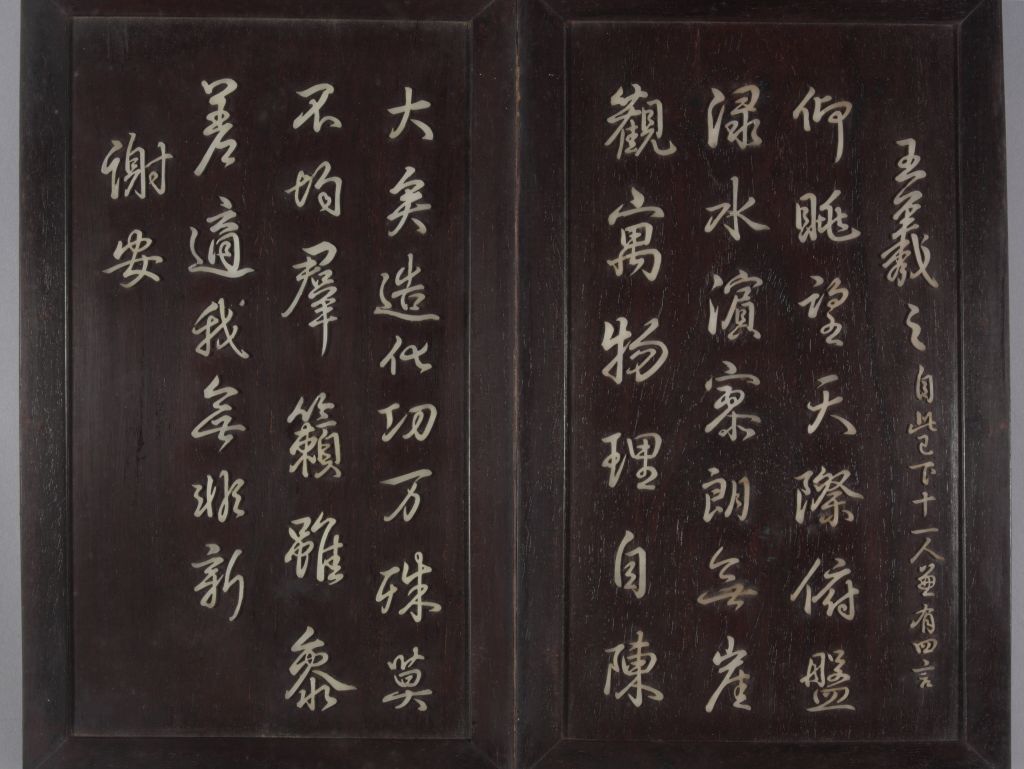 王羲之 自此已下十一人兼有四言
仰眺望天際俯盤
渌水濱寥朗無崖
觀寓物理自陳
大矣造化功万殊莫
不均羣籟雖參
差適我無非新
謝安